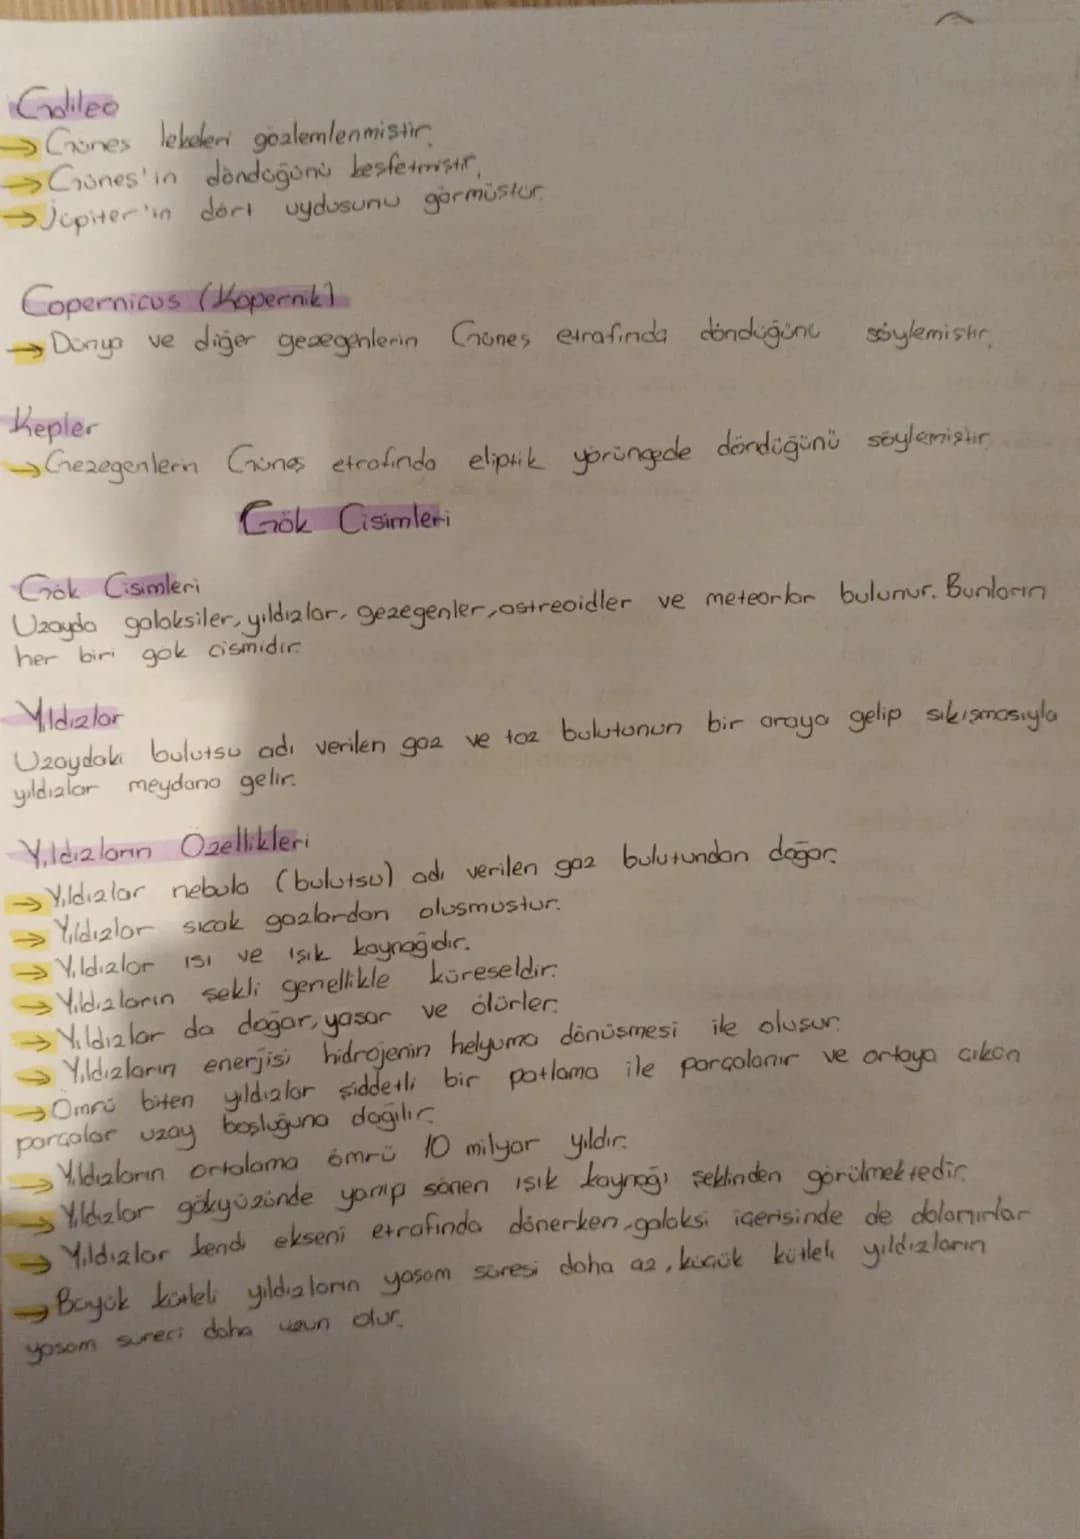 Galileo
→ Güneş lekeleri gözlemlenmiştir.
→ Güneş'in döndüğünü keşfetmiştir.
→ Jüpiter'in dört uydusunu görmüştür.
Copernicus (Kopernik)
→ Dünya ve diğer gezegenlerin Güneş etrafında döndüğünü söylemiştir.
Kepler
→ Gezegenlerin Güneş etrafında eliptik yörüngede döndüğünü söylemiştir.
Gök Cisimleri
Gök Cisimleri
Uzayda galaksiler, yıldızlar, gezegenler, astreoidler ve meteorlar bulunur. Bunların
her biri gok cismidir.
Yıldızlar
Uzaydaki bulutsu adı verilen gaz ve toz bulutunun bir araya gelip sıkışmasıyla
yıldızlar meydana gelir.
Yıldızların Özellikleri
→ Yıldızlar nebula (bulutsu) adı verilen gaz bulutundan doğar.
→ Yıldızlar sıcak gazlardan oluşmuştur.
→ Yıldızlar ısı ve ışık kaynağıdır.
→ Yıldızların şekli genellikle küreseldir.
→ Yıldızlar da doğar, yaşar ve ölürler.
→ Yıldızların enerjisi hidrojenin helyuma dönüşmesi ile oluşur.
→ Ömrü biten yıldızlar şiddetli bir patlama ile parçalanır ve ortaya çıkan
parçalar uzay boşluğuna dağılır.
→ Yıldızların ortalama ömrü 10 milyar yıldır.
→ Yıldızlar gökyüzünde yanıp sönen ışık kaynağı şeklinden görülmektedir.
→ Yıldızlar kendi ekseni etrafında dönerken, galaksi içerisinde de dolanırlar
→ Büyük kütleli yıldızların yaşam süresi daha az, küçük kütleli yıldızların
yaşam süreci daha uzun olur.